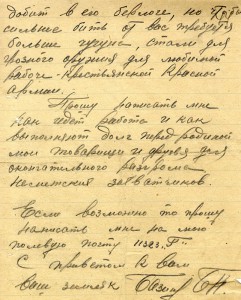 добит в его берлоге, но чтобы
сильнее бить от вас требуется
больше чугуна, стали для
грозного оружия для любимой
рабоче-крестьянской Красной
армии.
Прошу написать мне
как идет работа и как
выполняют долг перед родиной
мои товарищи и друзья для
окончательного разгрома
немецких захватчиков.
Если возможно то прошу
написать мне на мою
полевую почту "Г"
С приветом к Вам
Ваш земляк